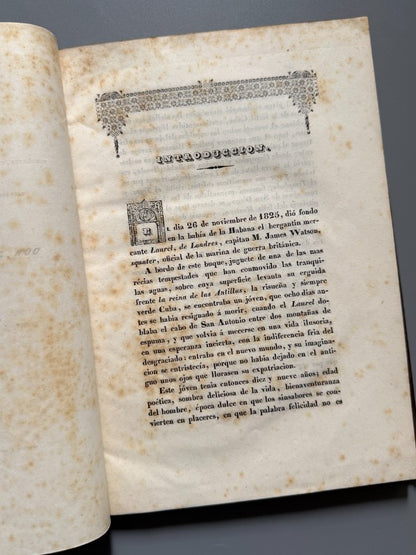 INTRODUCCION.
EL dia 26 de noviembre de 1825, dió fondo
en la bahía de la Habana el bergantin mer-
cante Laurel, de Londres, capitan M. James Watson,
squater, oficial de la marina de guerra británica.
A bordo de este buque, juguete de una de las mas
récias tempestades que han conmovido las tranqui-
las aguas, sobre cuya superficie levanta su erguida
frente la reina de las Antillas, la risueña y siempre
verde Cuba, se encontraba un jóven, que ocho dias an-
tes se habia resignado á morir, cuando el Laurel do-
blaba el cabo de San Autonio entre dos montañas de
espuma, y que volvia á mecerse en una vida ilusoria,
en una esperanza incierta, con la indiferencia fria del
desgraciado: entraba en el nuevo mundo, y su imagina-
cion se entristecía, porque no habia dejado en el anti-
guo unos ojos que llorasen su expatriacion.
Este jóven tenia entonces diez y nueve años; edad
poética, sombra deliciosa de la vida, bienaventuranza
del hombre, época dulce en que los sinsabores se con-
vierten en placeres, en que la palabra felicidad no es